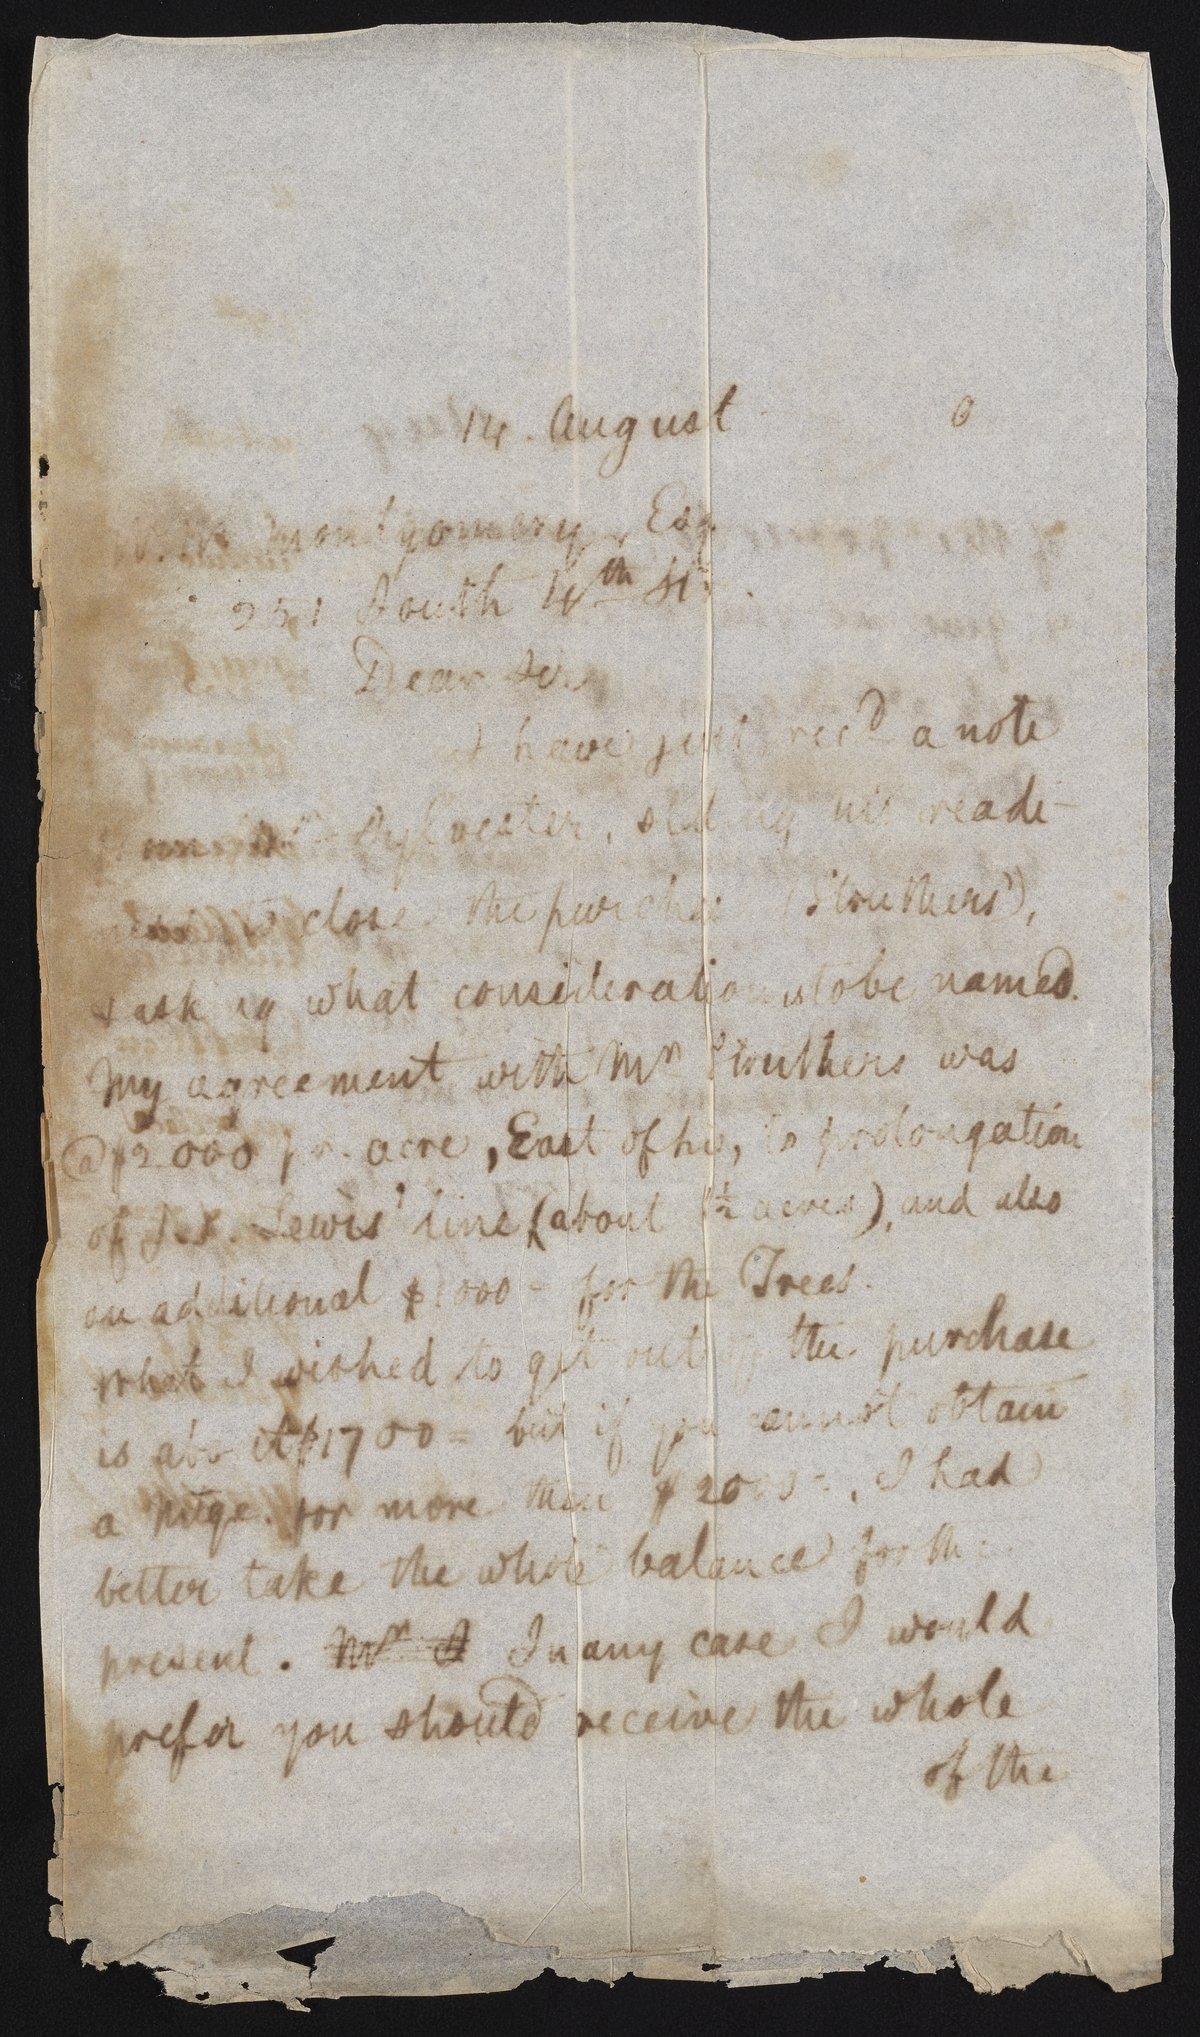 14. August
W. W. Montgomery, Esq.
251 South 4th St.
Dear Sir
I have just rec'd a note
from Mr Sylvester, stating his readi-
ness to close the purchase (Struthers'),
& asking what consideration is to be named.
My agreement with Mr Struthers was
@ $2000 pr. acre, East of his, to prolongation
of J. S. Lewis' line (about 1½ acres), and also
an additional $1000 - for the Trees.
What I wished to get out of the purchase
is about $1700 = but if you cannot obtain
a mtge. for more than $2000 -, I had
better take the whole balance for the
present. Mr S In any case I would
prefer you should receive the whole
of the